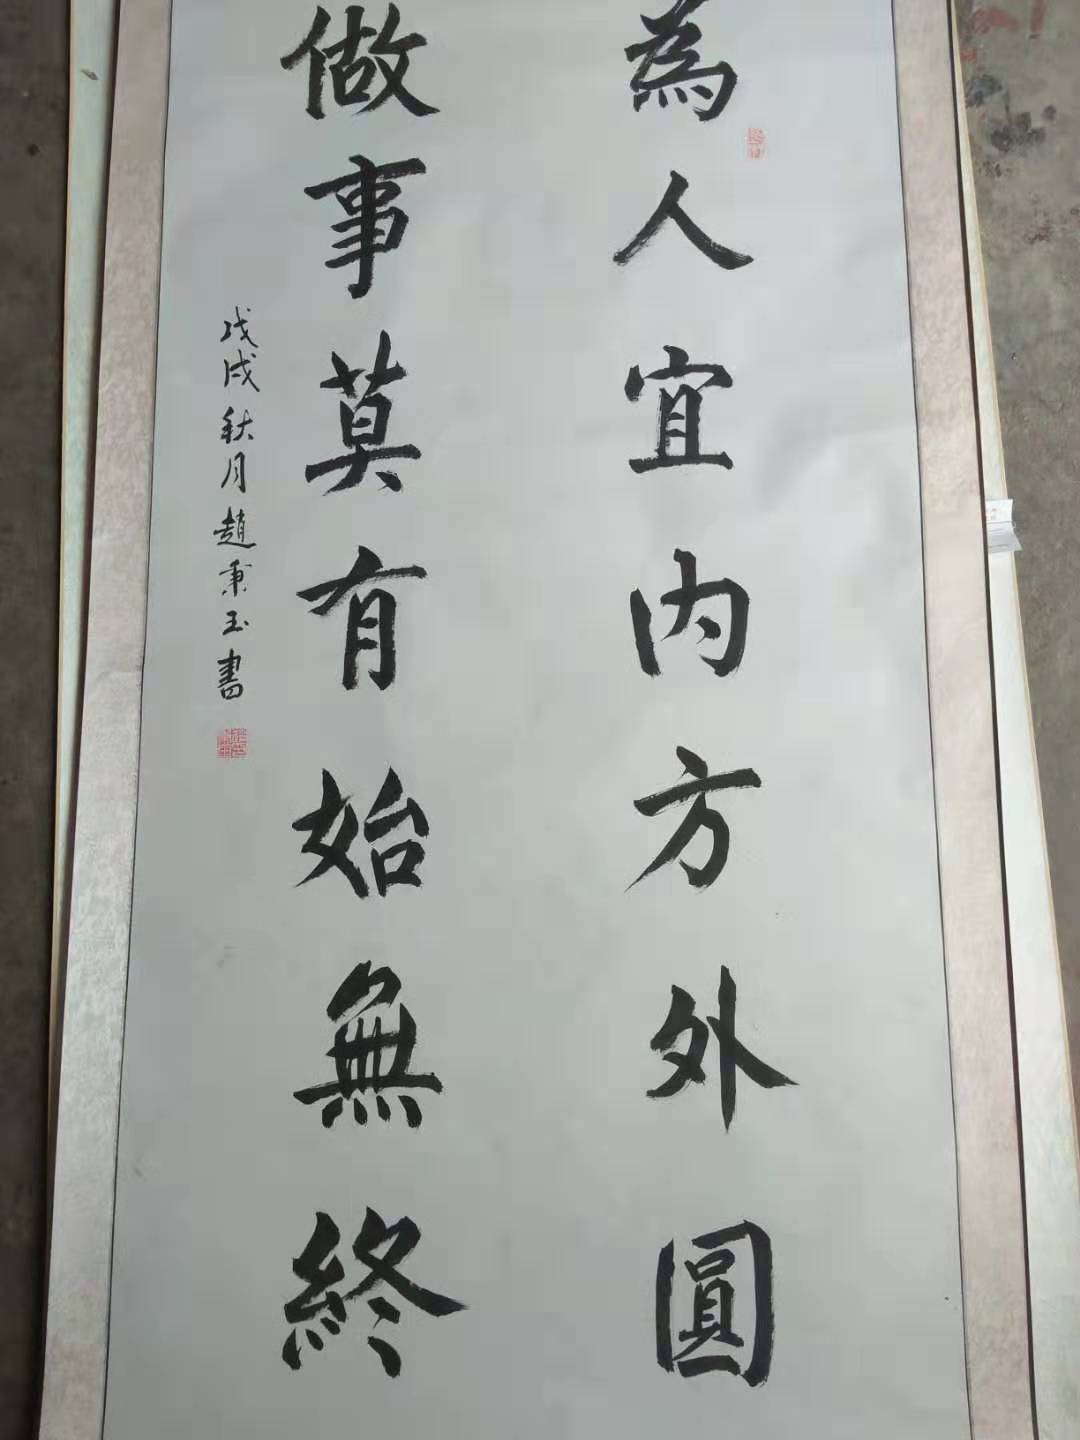 為人宜内方外圓
做事莫有始無終
戊戌秋月趙秉玉書